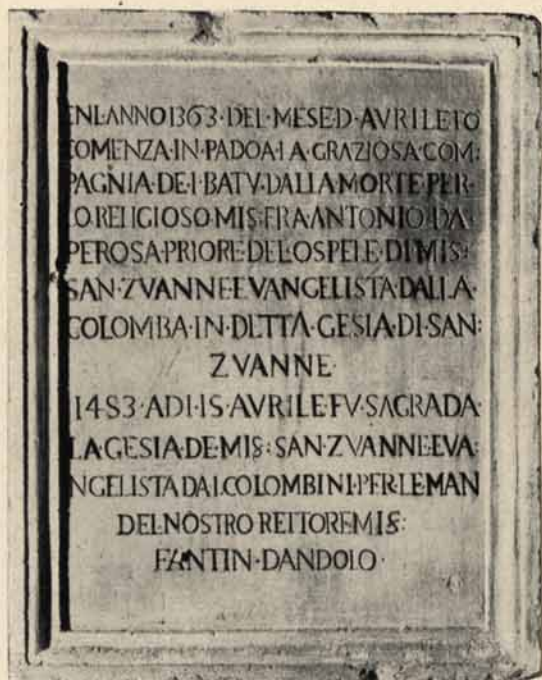 ENLANNO1363·DEL·MESE·D·AVRILE·FO
COMENZA·IN·PADOA·LA·GRAZIOSA·COM:
PAGNIA·DE·I·BATV·DALLA·MORTE·PER·
LO·RELIGIOSO·MIS·FRA·ANTONIO·DA·
PEROSA·PRIORE·DEL·OSPELE·DI·MIS:
SAN·ZVANNE·EVANGELISTA·DALLA·
COLOMBA·IN·DETTA·GESIA·DI·SAN:
ZVANNE·
1483·ADI·15·AVRILE·FV·SAGRADA·
LA·GESIA·DE·MIS:SAN·ZVANNE·EVA:
NGELISTA·DAI·COLOMBINI·PER·LE·MAN
DEL·NOSTRO·RETTORE·MIS:
FANTIN·DANDOLO·